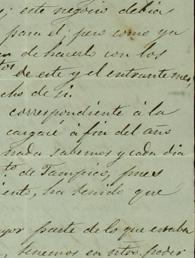 ; este negocio debia
para el; pero como ya
de hacerlo con los
de este y el entrante mes
cho de ti
correspondiente á la
cargaré á fin del año
nada sabemos y cada dia
de Tampico, pues
iento, ha tenido que
yor parte de lo que estaba
tenemos en ntro. poder